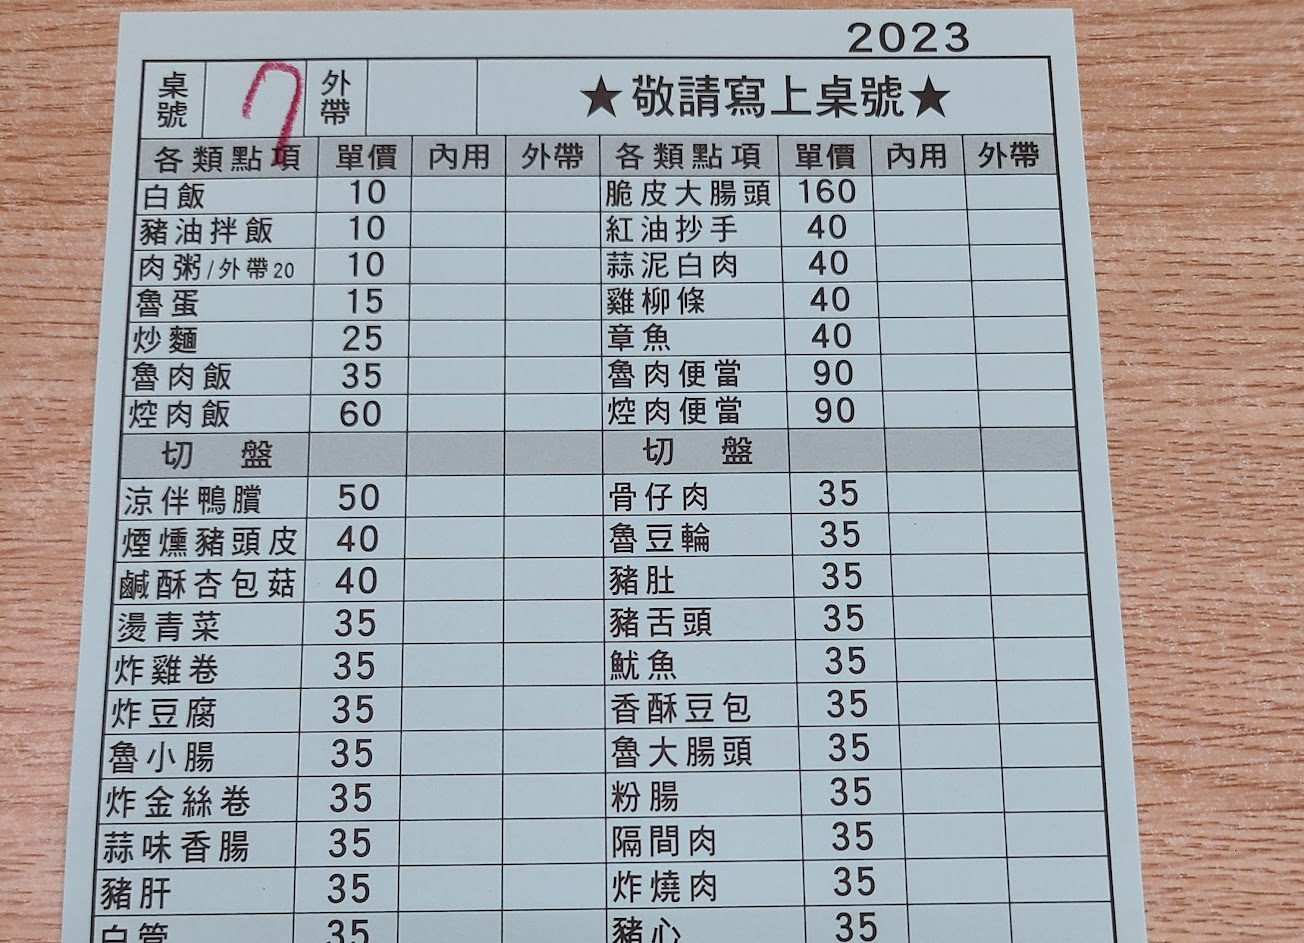 2023
桌號 7 外帶 ★敬請寫上桌號★
各類點項 單價 內用 外帶 各類點項 單價 內用 外帶
白飯 10 脆皮大腸頭 160
豬油拌飯 10 紅油抄手 40
肉粥/外帶20 10 蒜泥白肉 40
魯蛋 15 雞柳條 40
炒麵 25 章魚 40
魯肉飯 35 魯肉便當 90
焢肉飯 60 焢肉便當 90
切盤 切盤
涼伴鴨臢 50 骨仔肉 35
煙燻豬頭皮 40 魯豆輪 35
鹹酥杏包菇 40 豬肚 35
燙青菜 35 豬舌頭 35
炸雞卷 35 魷魚 35
炸豆腐 35 香酥豆包 35
魯小腸 35 魯大腸頭 35
炸金絲卷 35 粉腸 35
蒜味香腸 35 隔間肉 35
豬肝 35 炸燒肉 35
白管 35 豬心 35